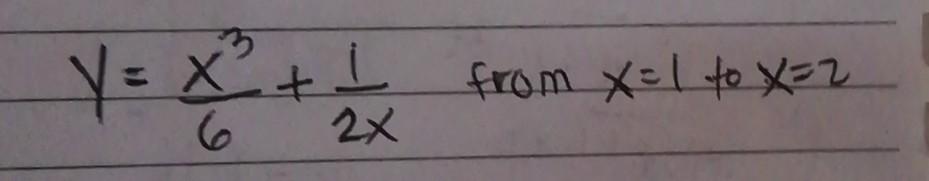 y = x³/6 + 1/2x from x=1 to x=2